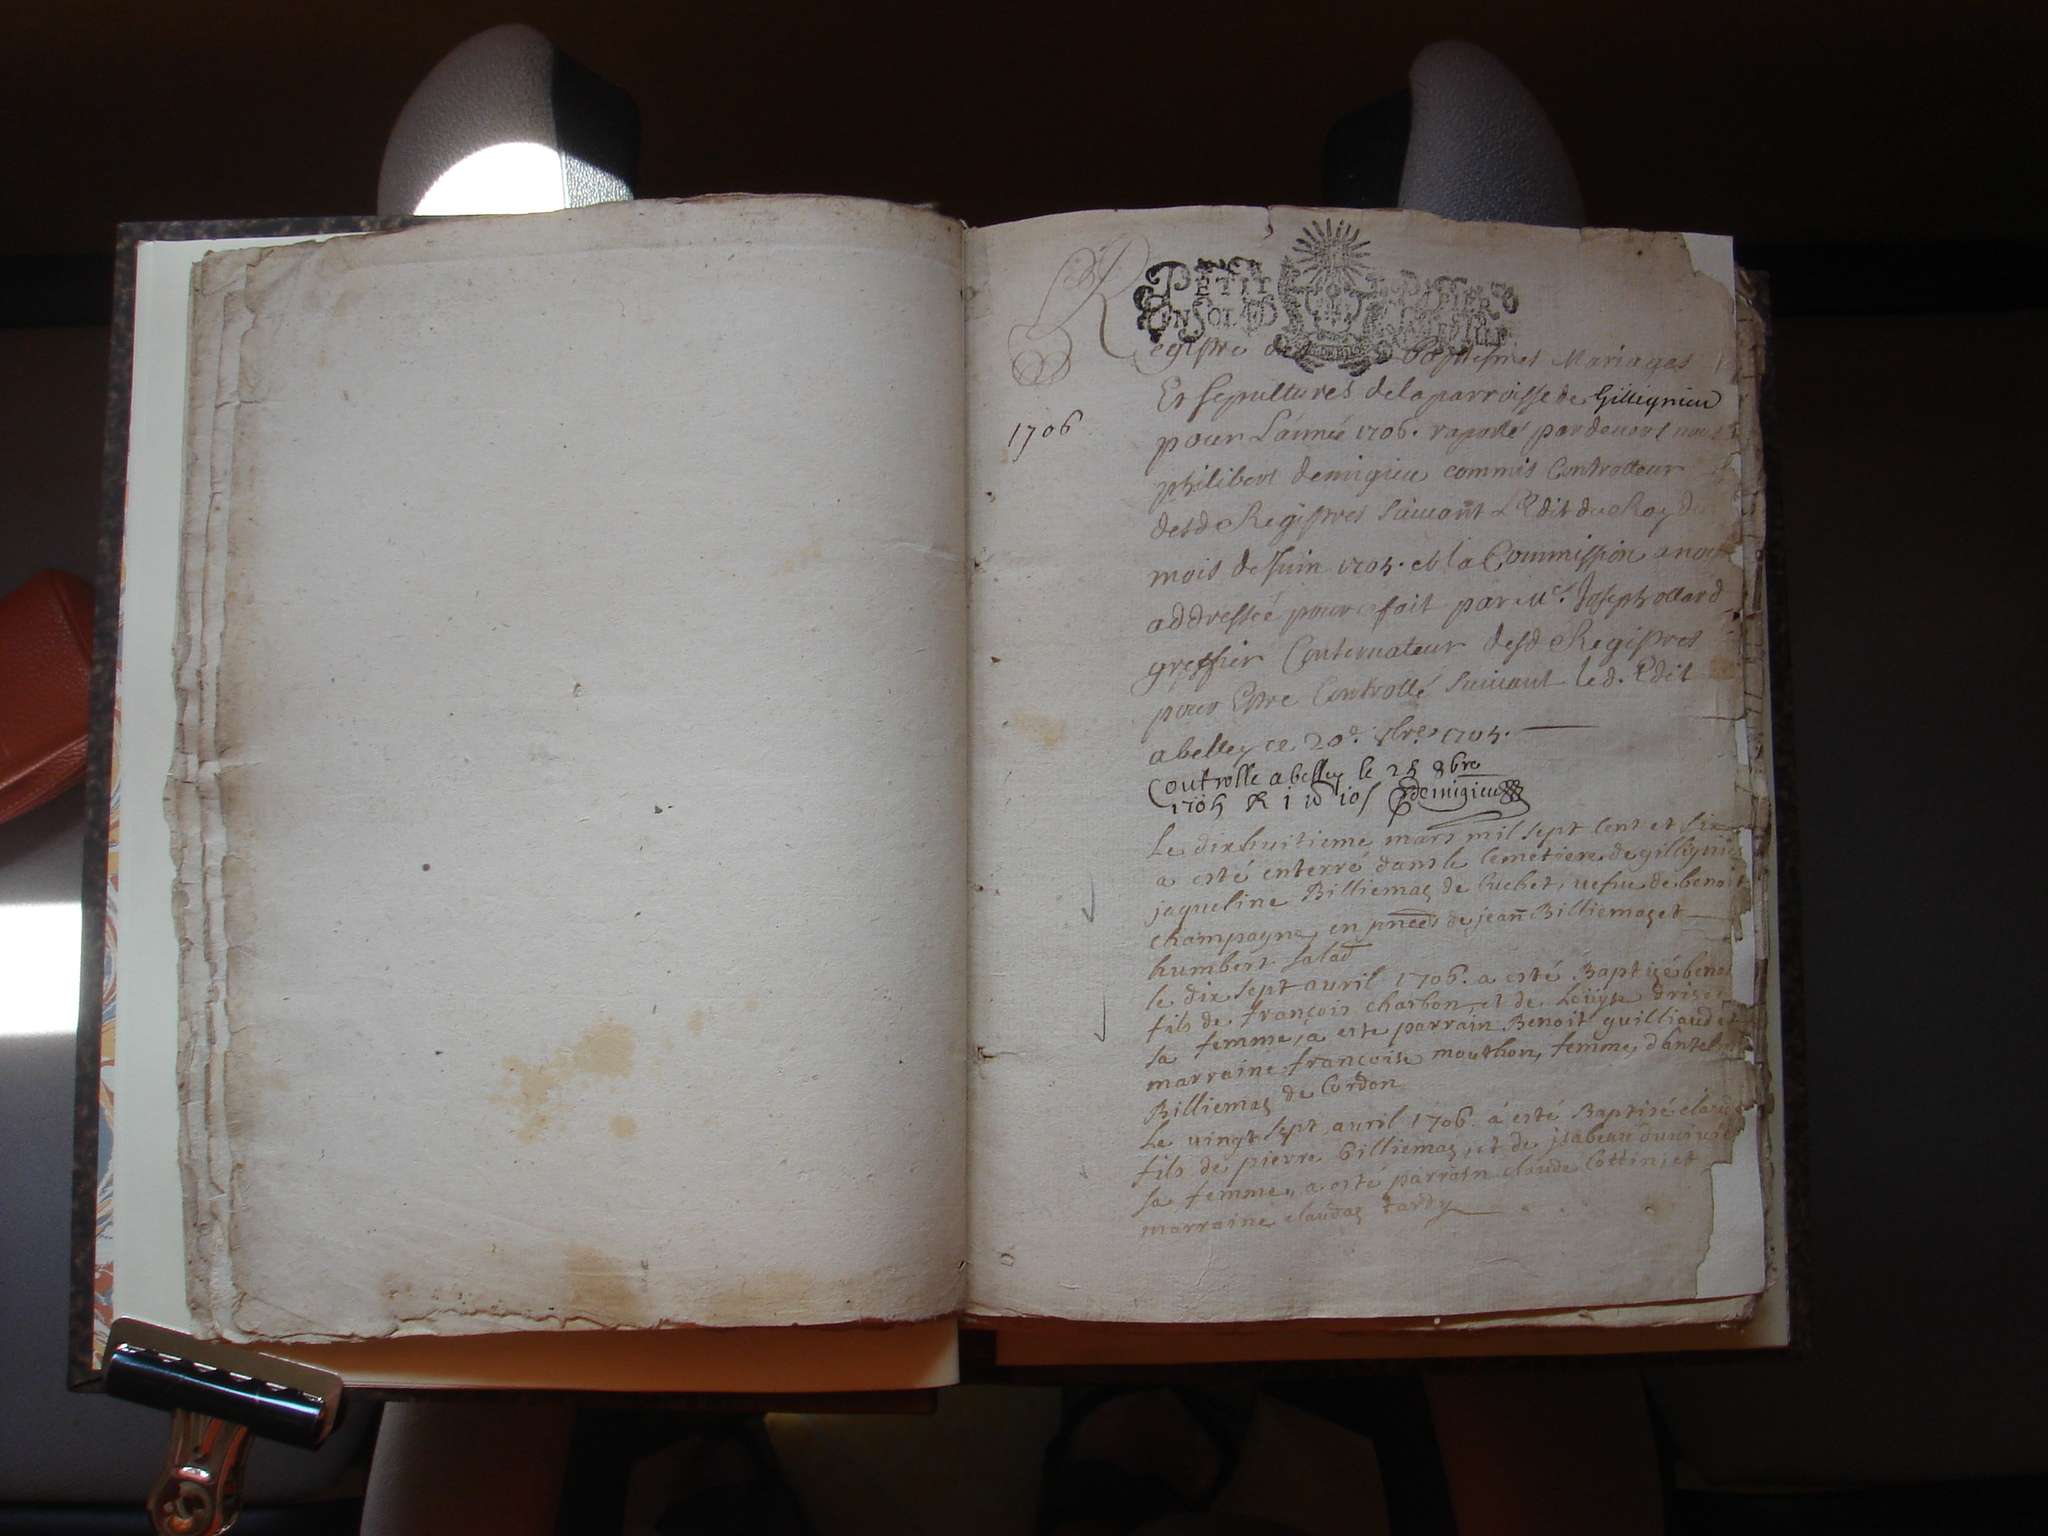 PETIT PAPIER
CINQ SOLS
Registre des Baptesmes Mariages
Et sepultures de la parroisse de Gillignieu
1706
pour L'année 1706. raportés pardevant nous
philibert Demigieu commis Controlleur
desd Registres suivant L'Edit du Roy du
mois de Juin 1705. et la Commission a nous
addressée pour fait par Me. Joseph ollard
greffier Conservateur desd Registres
pour Estre Controllé suivant led. Edit
a belley ce 20e. 1705.
Controlle a belley le 25 8bre
1705 Demigieu
Le dixhuitieme mars mil sept cent et six
a esté enterré dans le cemetiere de gillignieu
jaqueline Billiemaz de Cuchet, vefve de benoit
champagne, en pnces de jean Billiemaz et
humbert salad
le dix sept avril 1706. a esté Baptizé benoit
fils de françois charbon, et de Loüyse
sa femme, a esté parrain Benoit guilliaud et
marraine françoise mouthon, femme, d'antelme
Billiemaz de Cordon
Le vingt sept avril 1706. á esté Baptizé claude
fils de pierre billiemaz, et de jsabeau
sa femme, a esté parrain claude Cottin, et
marraine claudaz tardy